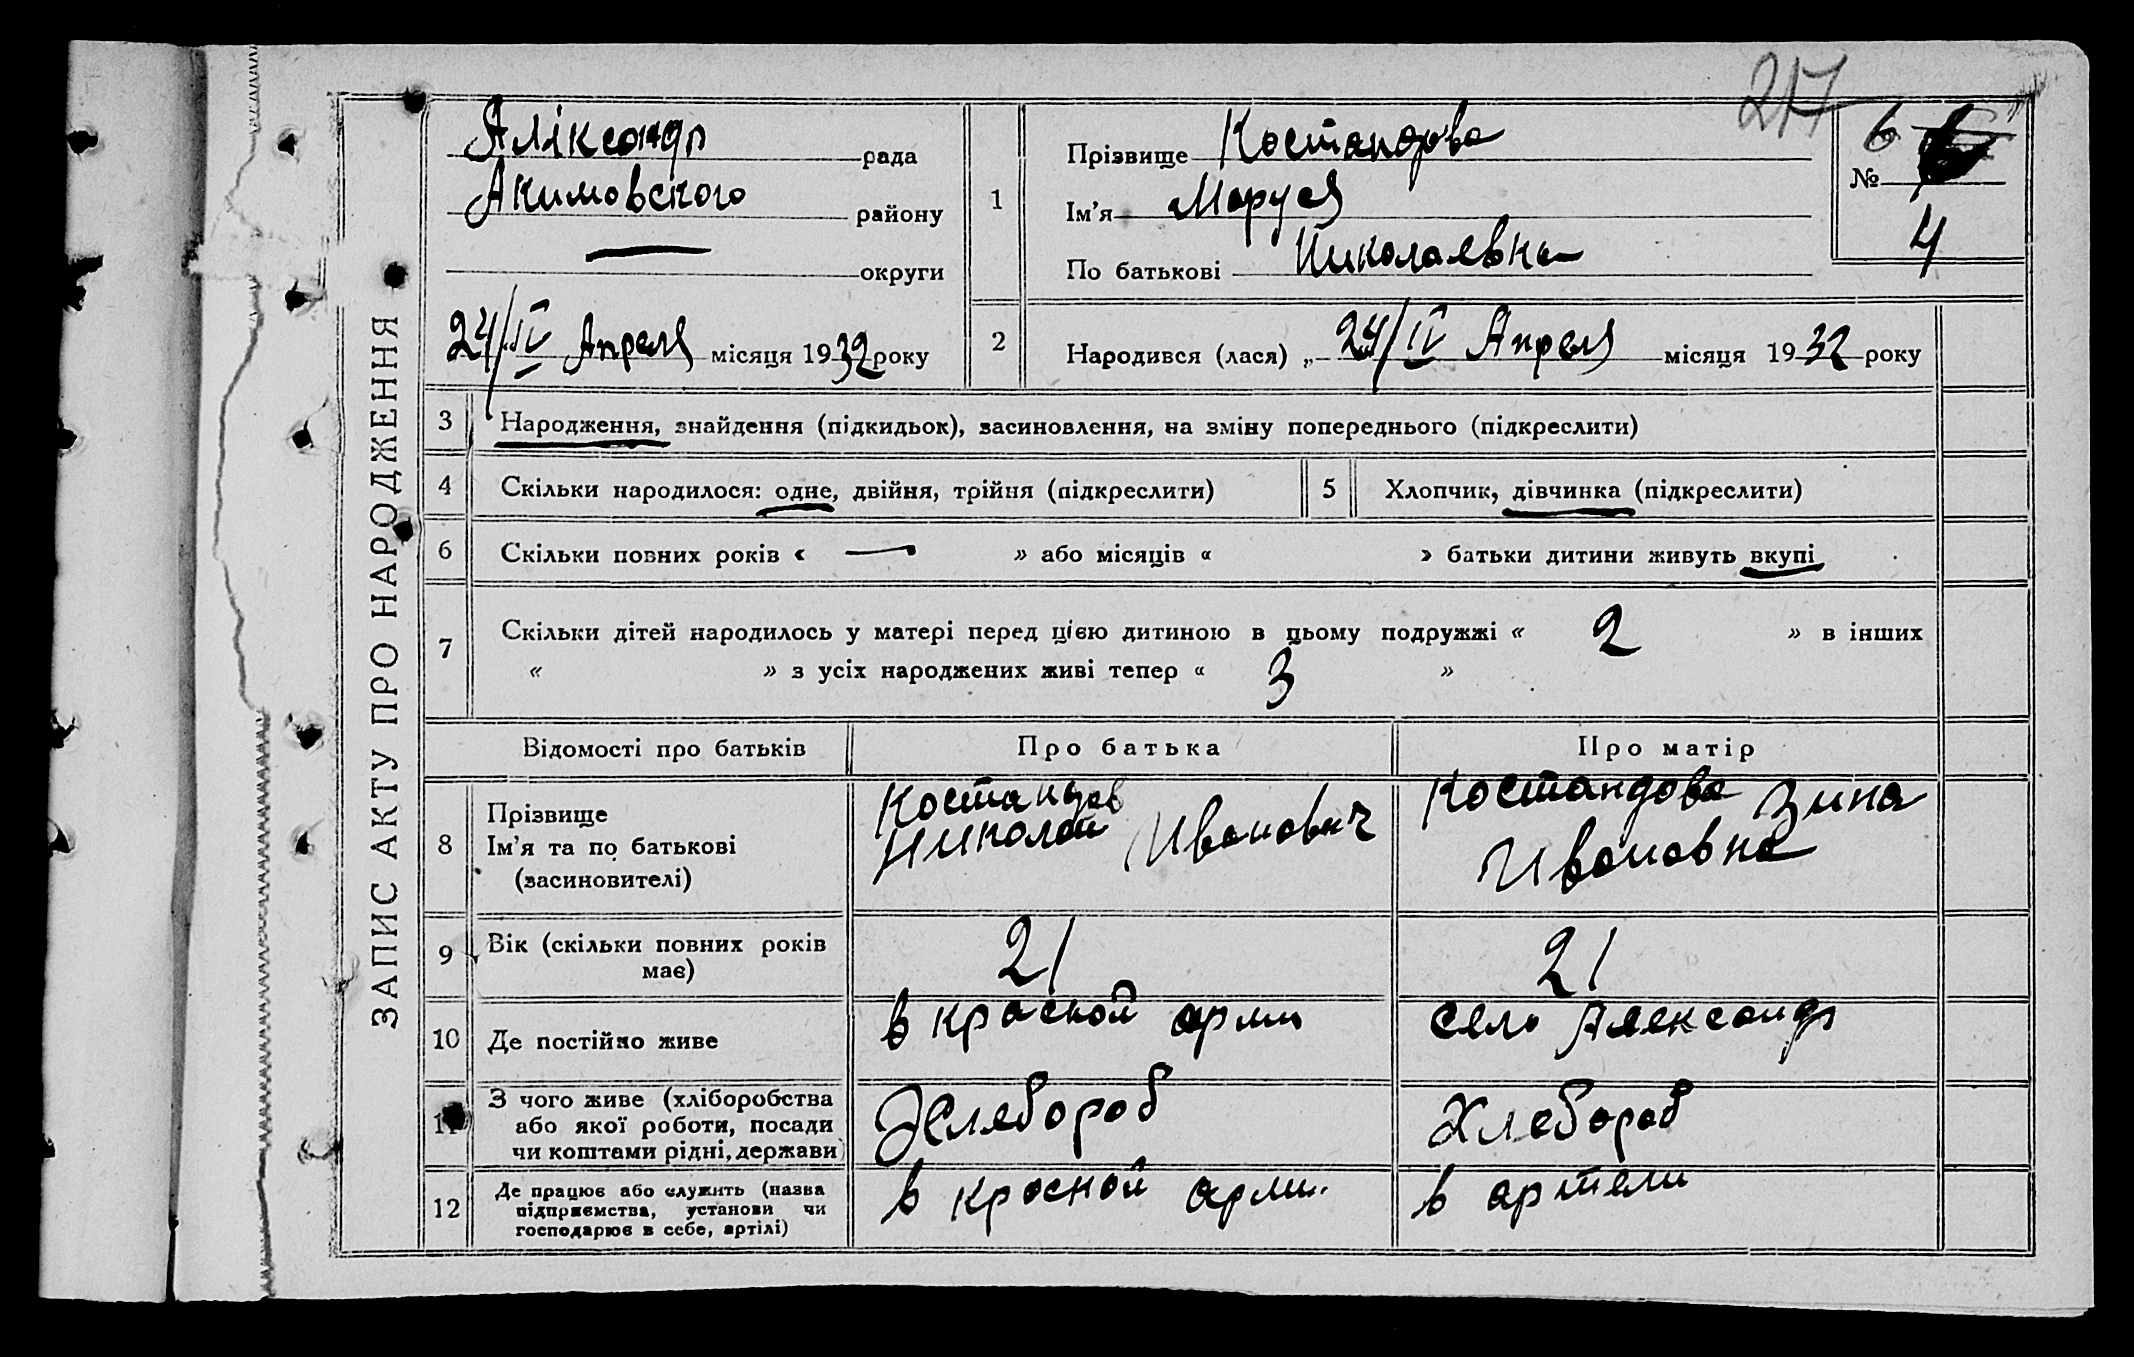 217
ЗАПИС АКТУ ПРО НАРОДЖЕННЯ
Аліксандр рада
Акимовского району
— округи
24/IV Апреля місяця 1932 року
1
Прізвище Костандова
Ім'я Маруся
По батькові Николаевна
6
№
4
2
Народився (лася) „ 24/IV Апреля місяця 1932 року
3 Народження, знайдення (підкидьок), засиновлення, на зміну попереднього (підкреслити)
4 Скільки народилося: одне, двійня, трійня (підкреслити)
5 Хлопчик, дівчинка (підкреслити)
6 Скільки повних років « — » або місяців « » батьки дитини живуть вкупі
7 Скільки дітей народилось у матері перед цією дитиною в цьому подружжі « 2 » в інших
« » з усіх народжених живі тепер « 3 »
Відомості про батьків
Про батька
Про матір
8
Прізвище
Ім'я та по батькові
(засиновителі)
Костандов
Николай Иванович
Костандова Зина
Ивановна
9
Вік (скільки повних років
має)
21
21
10 Де постійно живе
в красной арми
село Александр
11
З чого живе (хліборобства
або якої роботи, посади
чи коштами рідні, держави)
Хлебороб
Хлебороб
12
Де працює або служить (назва
підприємства, установи чи
господарює в себе, артілі)
в красной арми.
в артели